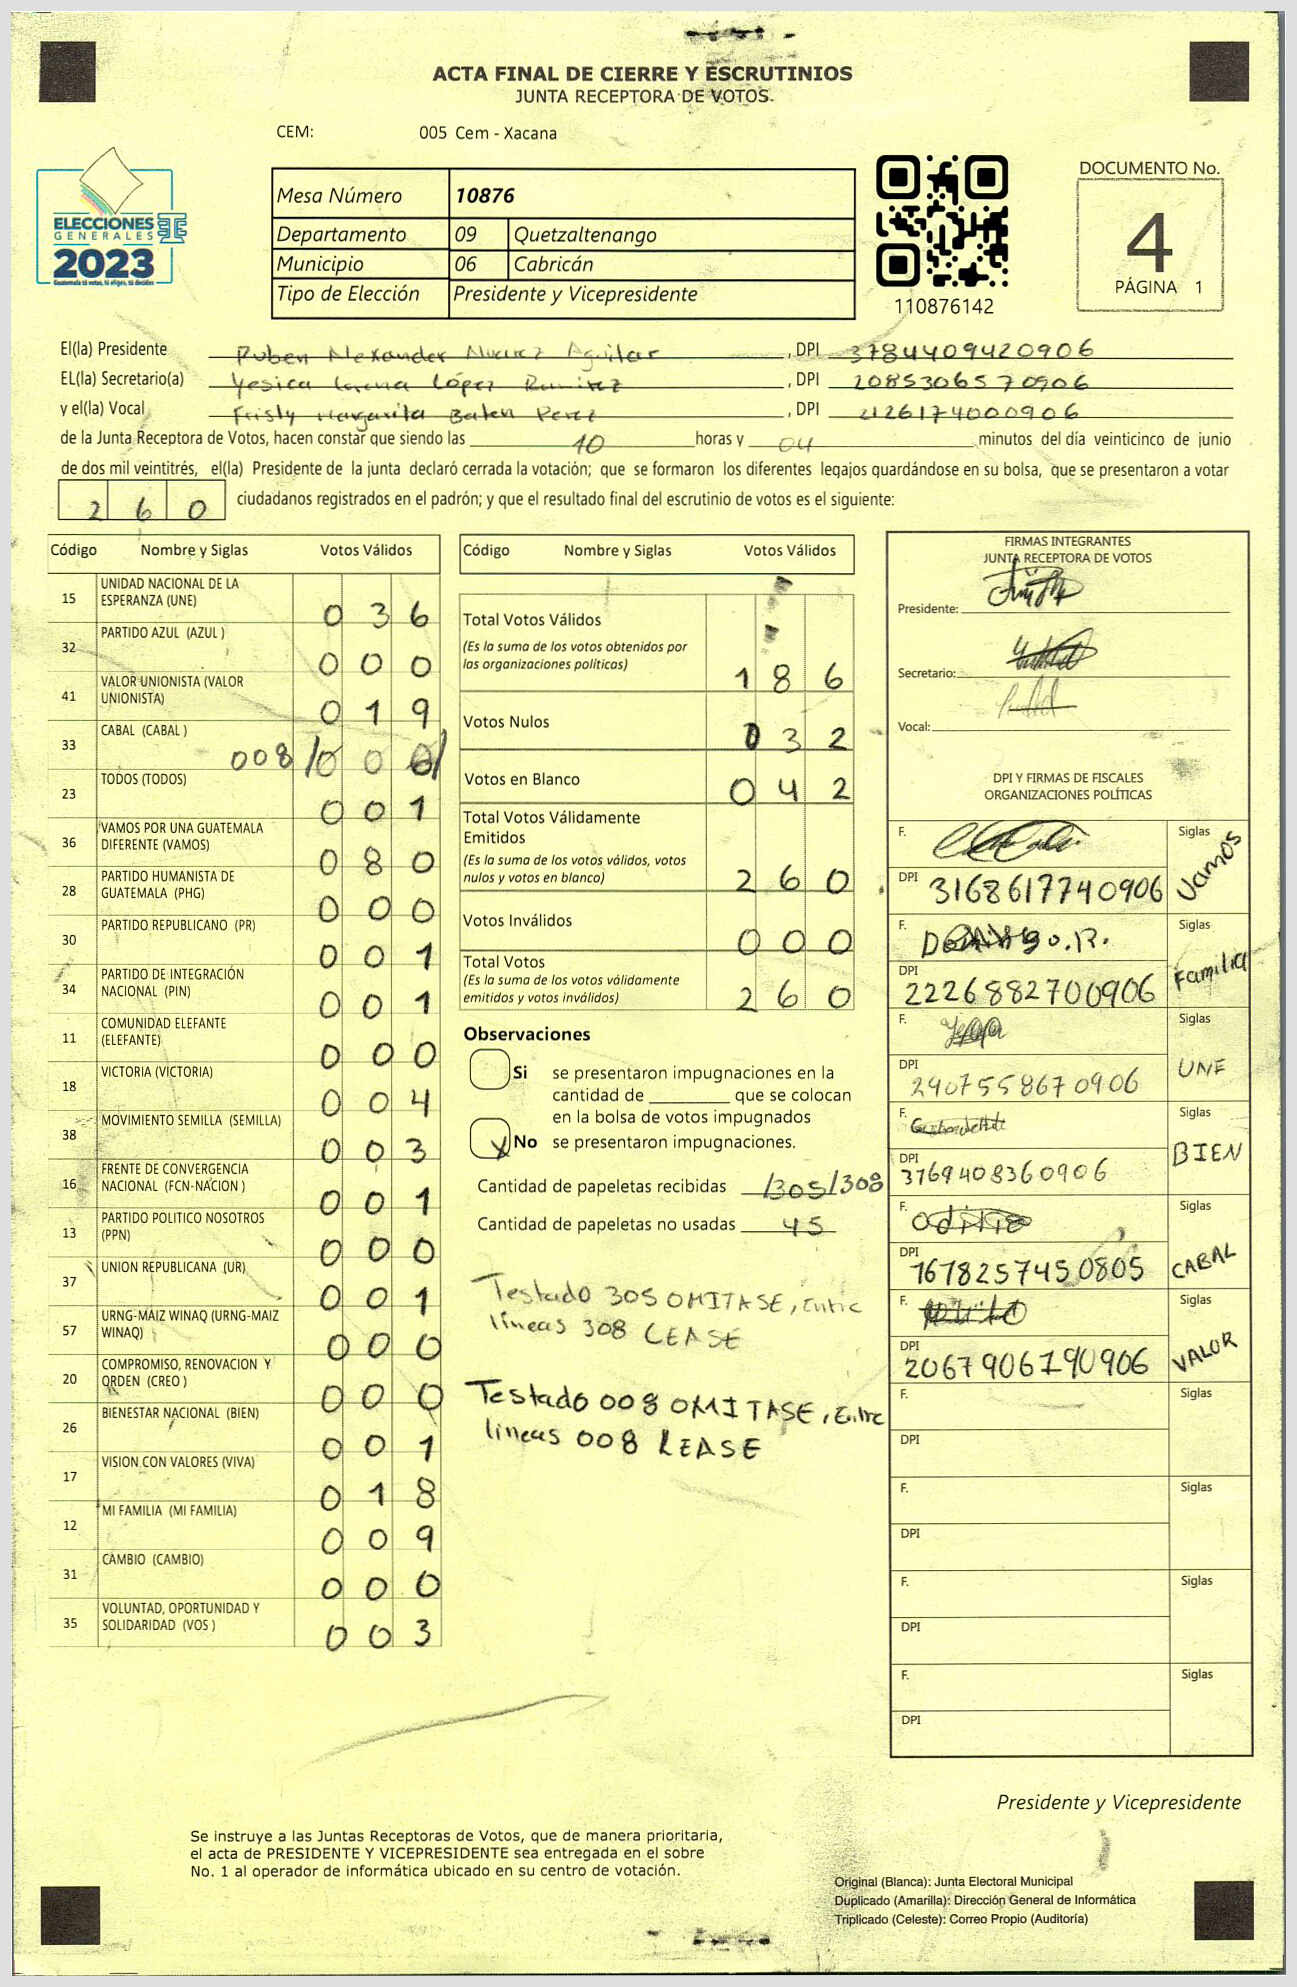 ACTA FINAL DE CIERRE Y ESCRUTINIOS
JUNTA RECEPTORA DE VOTOS.
CEM: 005 Cem - Xacana
ELECCIONES
GENERALES
2023
Guatemala tú votas, tú eliges, tú decides
Mesa Número 10876
Departamento 09 Quetzaltenango
Municipio 06 Cabricán
Tipo de Elección Presidente y Vicepresidente
110876142
DOCUMENTO No.
4
PÁGINA 1
El(la) Presidente Ruben Alexander Aguilar , DPI 3784409420906
EL(la) Secretario(a) Yesica López Ramirez , DPI 2085306570906
y el(la) Vocal Margarita Baten Perez , DPI 2126174000906
de la Junta Receptora de Votos, hacen constar que siendo las 10 horas y 04 minutos del día veinticinco de junio
de dos mil veintitrés, el(la) Presidente de la junta declaró cerrada la votación; que se formaron los diferentes legajos quardándose en su bolsa, que se presentaron a votar
260 ciudadanos registrados en el padrón; y que el resultado final del escrutinio de votos es el siguiente:
Código Nombre y Siglas Votos Válidos
15 UNIDAD NACIONAL DE LA ESPERANZA (UNE) 036
32 PARTIDO AZUL (AZUL ) 000
41 VALOR UNIONISTA (VALOR UNIONISTA) 019
33 CABAL (CABAL ) 008 /000/
23 TODOS (TODOS) 001
36 VAMOS POR UNA GUATEMALA DIFERENTE (VAMOS) 080
28 PARTIDO HUMANISTA DE GUATEMALA (PHG) 000
30 PARTIDO REPUBLICANO (PR) 001
34 PARTIDO DE INTEGRACIÓN NACIONAL (PIN) 001
11 COMUNIDAD ELEFANTE (ELEFANTE) 000
18 VICTORIA (VICTORIA) 004
38 MOVIMIENTO SEMILLA (SEMILLA) 003
16 FRENTE DE CONVERGENCIA NACIONAL (FCN-NACION ) 001
13 PARTIDO POLITICO NOSOTROS (PPN) 000
37 UNION REPUBLICANA (UR) 001
57 URNG-MAIZ WINAQ (URNG-MAIZ WINAQ) 000
20 COMPROMISO, RENOVACION Y ORDEN (CREO ) 000
26 BIENESTAR NACIONAL (BIEN) 001
17 VISION CON VALORES (VIVA) 018
12 MI FAMILIA (MI FAMILIA) 009
31 CAMBIO (CAMBIO) 000
35 VOLUNTAD, OPORTUNIDAD Y SOLIDARIDAD (VOS ) 003
Código Nombre y Siglas Votos Válidos
Total Votos Válidos 186
(Es la suma de los votos obtenidos por
las organizaciones políticas)
Votos Nulos 032
Votos en Blanco 042
Total Votos Válidamente
Emitidos
(Es la suma de los votos válidos, votos
nulos y votos en blanco) 260
Votos Inválidos 000
Total Votos
(Es la suma de los votos válidamente
emitidos y votos inválidos) 260
Observaciones
Si se presentaron impugnaciones en la
cantidad de ________ que se colocan
en la bolsa de votos impugnados
X No se presentaron impugnaciones.
Cantidad de papeletas recibidas /305/308
Cantidad de papeletas no usadas 45
Testado 305 OMITASE, Entre
lineas 308 LEASE
Testado 008 OMITASE, Entre
lineas 008 LEASE
FIRMAS INTEGRANTES
JUNTA RECEPTORA DE VOTOS
Presidente:
Secretario:
Vocal:
DPI Y FIRMAS DE FISCALES
ORGANIZACIONES POLÍTICAS
F. Siglas Vamos
DPI 3168617740906
F. Siglas Familia
DPI 2226882700906
F. Siglas UNE
DPI 2907558670906
F. Siglas BIEN
DPI 3769408360906
F. Siglas CABAL
DPI 1678257450805
F. Siglas VALOR
DPI 2067906190906
F. Siglas
DPI
F. Siglas
DPI
F. Siglas
DPI
F. Siglas
DPI
Presidente y Vicepresidente
Se instruye a las Juntas Receptoras de Votos, que de manera prioritaria,
el acta de PRESIDENTE Y VICEPRESIDENTE sea entregada en el sobre
No. 1 al operador de informática ubicado en su centro de votación.
Original (Blanca): Junta Electoral Municipal
Duplicado (Amarilla): Dirección General de Informática
Triplicado (Celeste): Correo Propio (Auditoría)